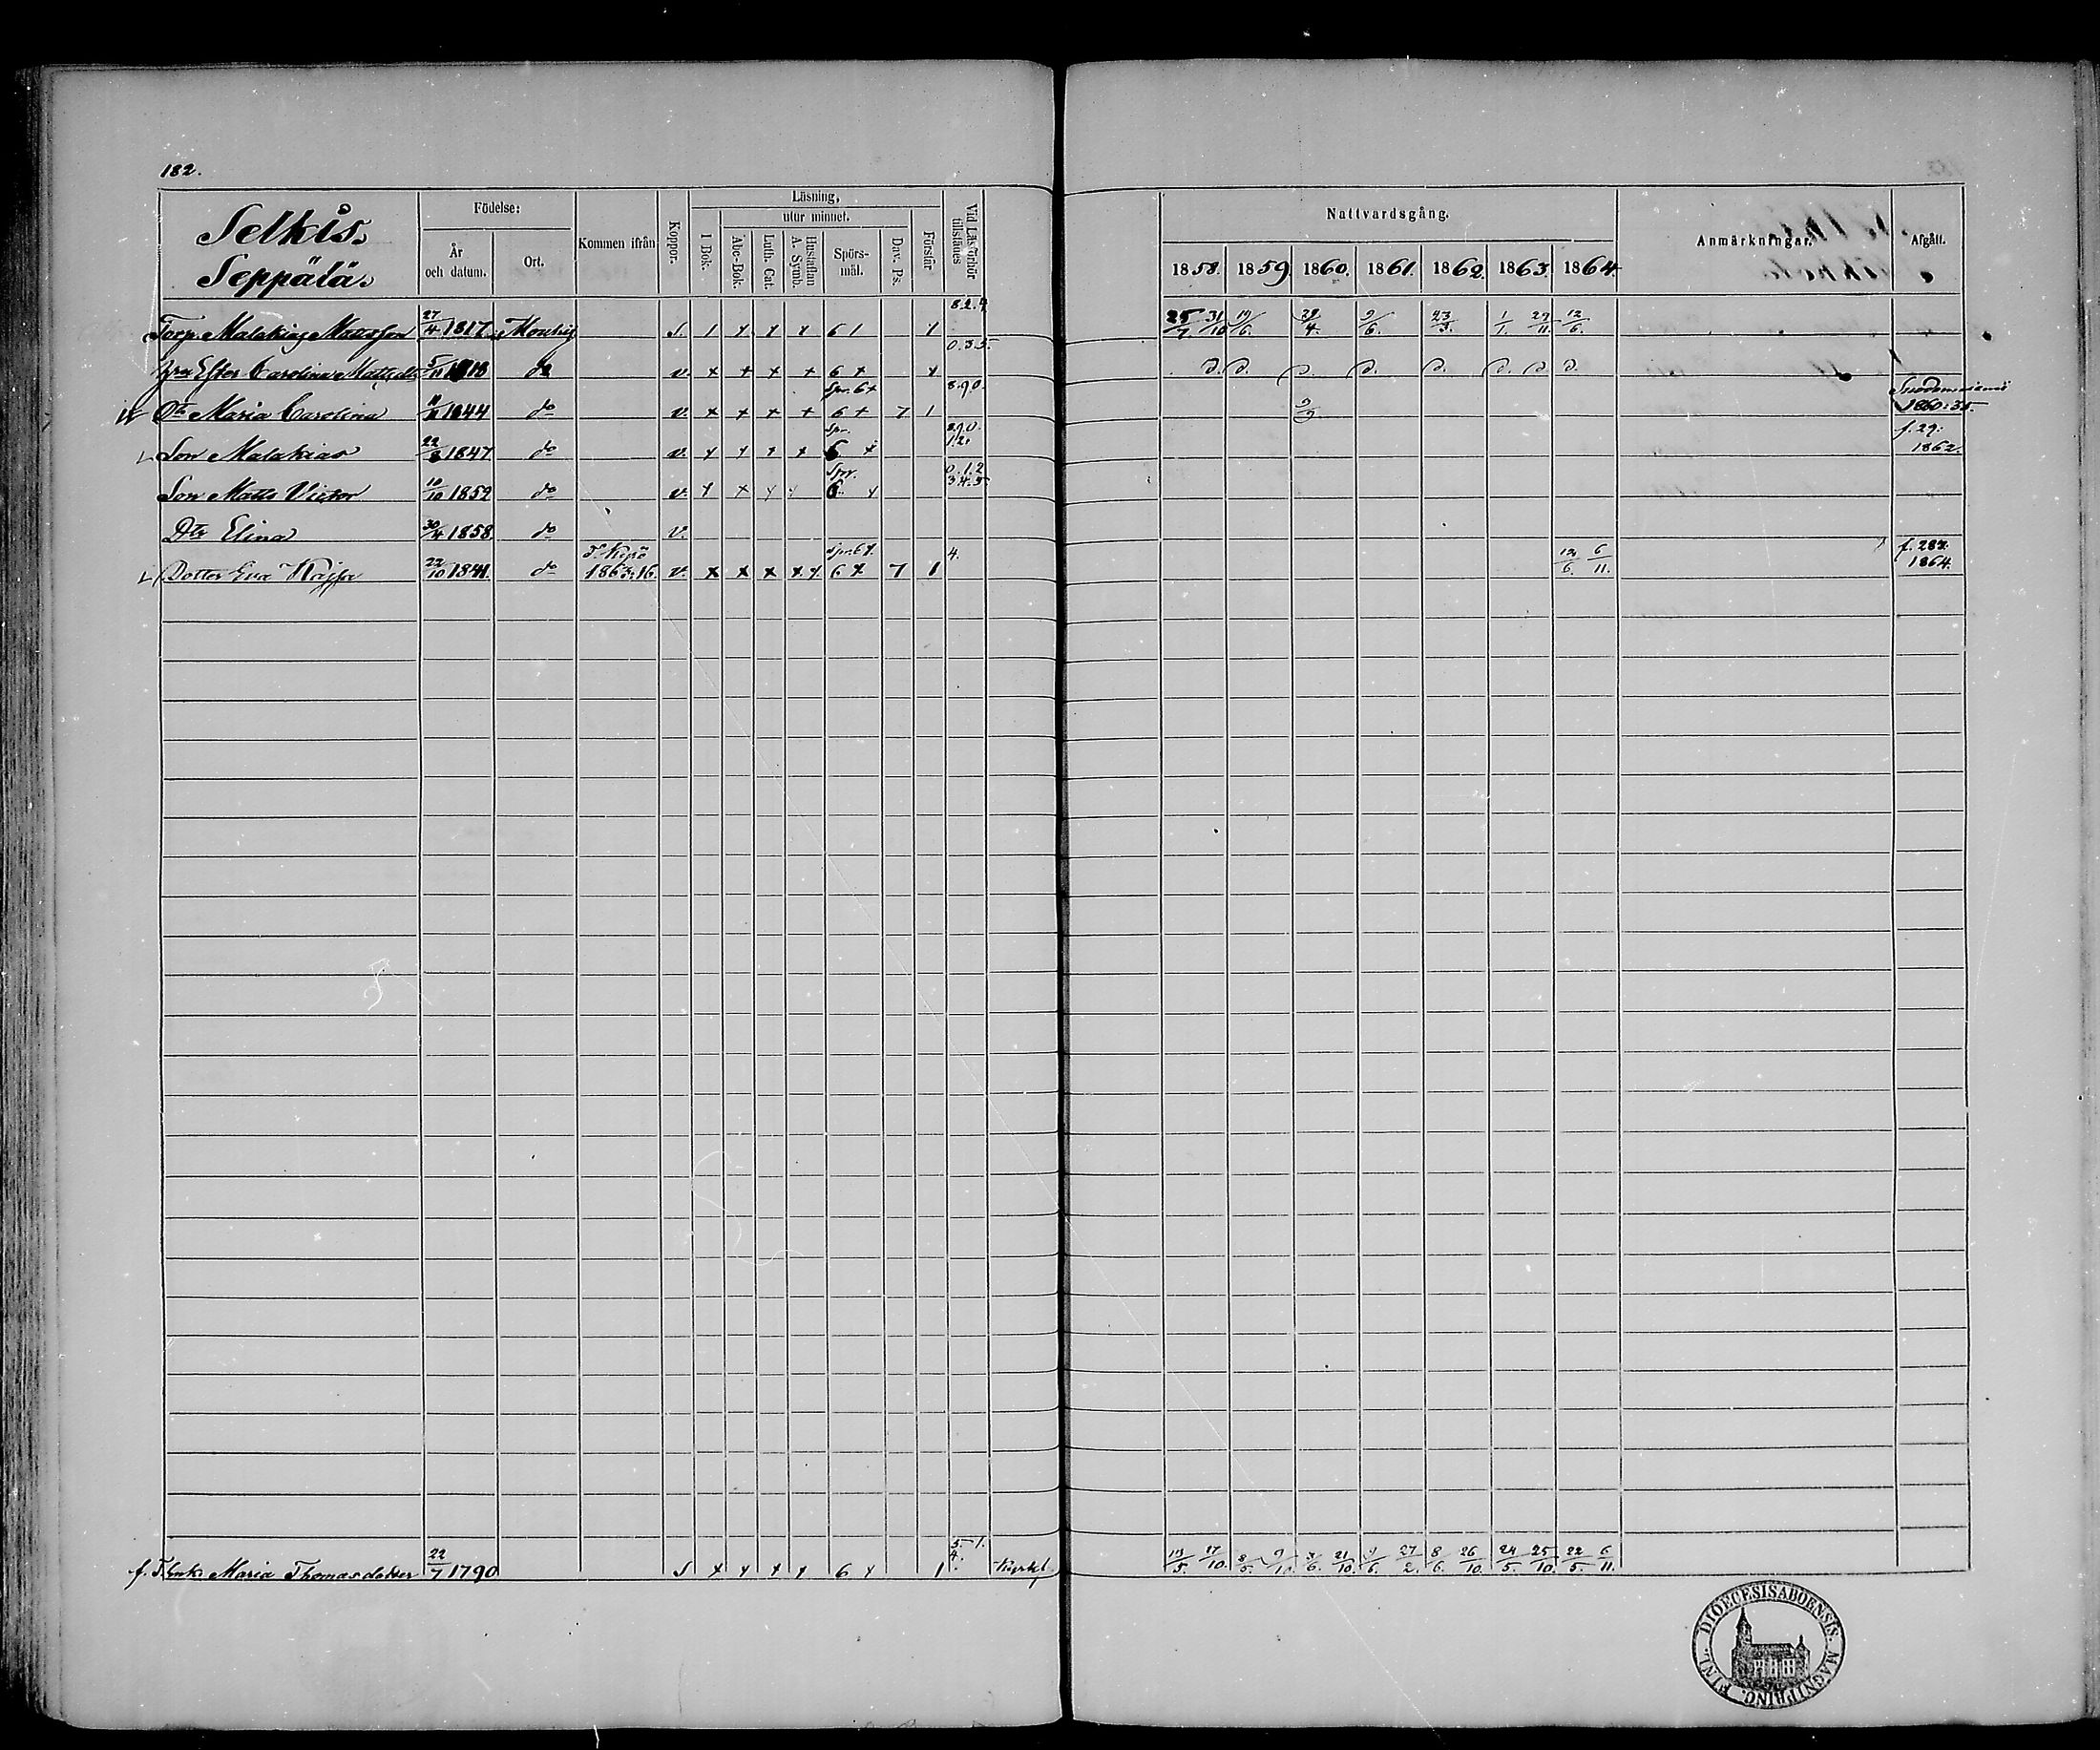 182.
Selkis.
Seppälä.
Födelse:
År och datum.
Ort.
Kommen ifrån
Koppor.
Läsning,
utur minnet.
I Bok.
Abc-Bok.
Luth. Cat.
Hustaflan A. Symb.
Spörs-mål.
Dav. Ps.
Förstår
Vid Läsförhör tillstädes
Nattvardsgång.
1858. 1859. 1860. 1861. 1862. 1863. 1864.
Anmärkningar.
Afgått.
Torp. Malakias Mattsson 27/4 1817 s. 1 6 1 8.2.4 25/7 31/10 19/6. 29/4. 9/6. 23/3. 1/1. 29/11. 12/6.
Ester Carolina 5/11 1818 do v. x + x + 6 x x 0.3.5. D. D. D. D. D. D. D. D.
Dtr Maria Carolina 11/11 1844 do v. x + x + Spr. 6 x 6 + 7 1 8.9.0. 9/9 1860:35.
Son Malakias 22/3 1847 do v. Spr. 6 x 8.9.0. 1.2. f. 29. 1862.
Son Matts Victor 10/10 1852 do v. Spr. 6 0.1.2 3.4.5
Dtr Elina 30/4 1858 do v.
Dotter Eva Kajsa 22/10 1841. do 1863:16. v. x x x x x. Spr. 6 x. 6 x 7 1 4. 12/6. 6/11. f. 287. 1864.
f. T. Enk. Maria Thomasdotter 22/7 1790 s x x x x 6 x 1 5.1. 4. 13/5. 17/10. 8/5. 9/10 3/6. 21/10. 9/6. 27/2. 8/6. 26/10. 24/5. 25/10. 22/5. 6/11.
DIOECESIS ABOENSIS. MAGNI PRINC. FINL.